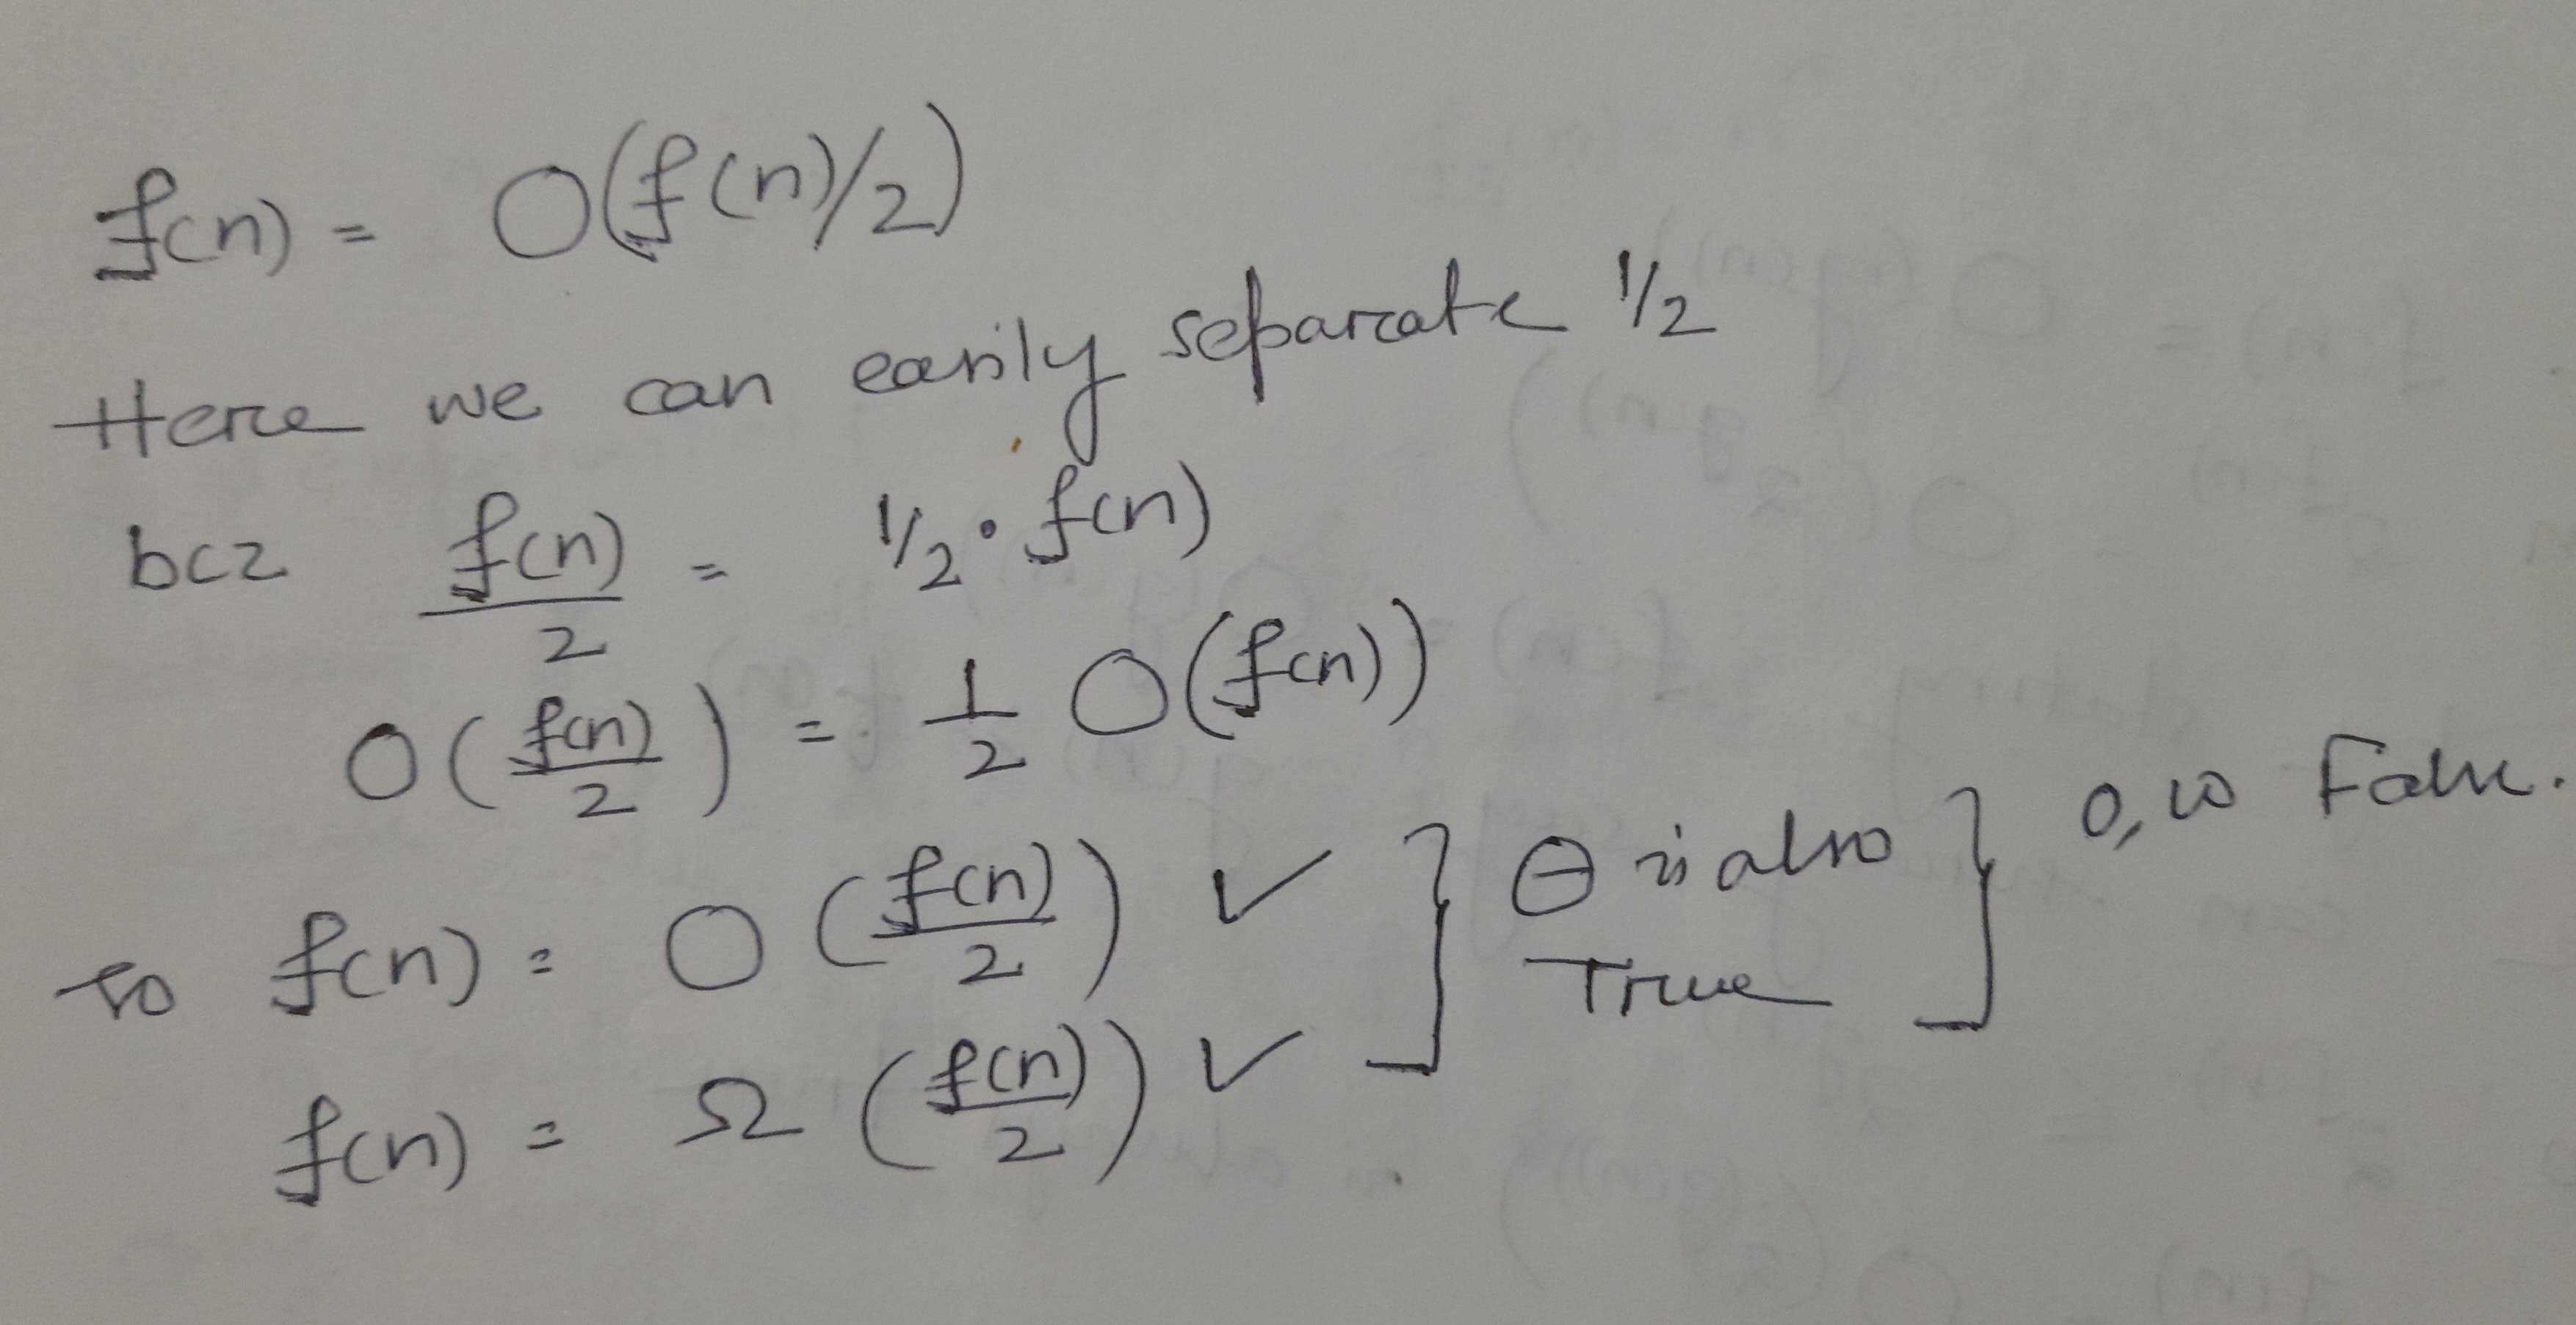 f(n) = O(f(n)/2)
Here we can easily separate 1/2
bcz f(n)/2 = 1/2 · f(n)
O(f(n)/2) = 1/2 O(f(n))
so f(n) = O(f(n)/2) ✓
f(n) = Ω(f(n)/2) ✓
} Θ is also True } o, ω False.